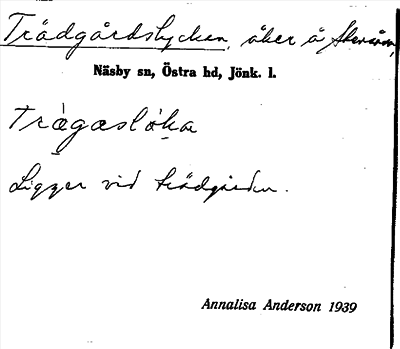 Trädgårdslyckan, åker å
Näsby sn, Östra hd, Jönk. l.
Trägaslöka
Ligger vid trädgården.
Annalisa Anderson 1939